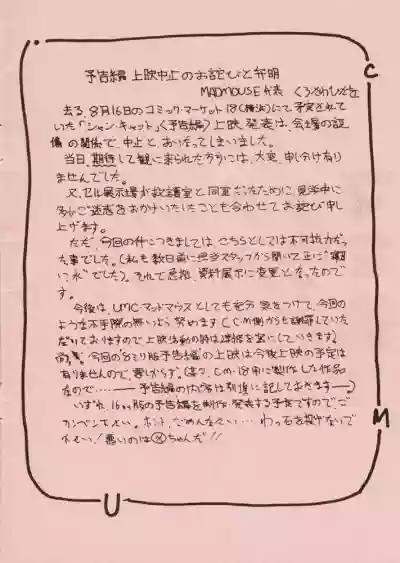 予告編 上映中止のお詫びと弁明
MADMOUSE代表 くろさわひと
去る、8月16日のコミック・マーケット18(横浜)にて予定されて
いた「シャン・キャット」〈予告編〉上映、発表は、会場の設
備の関係で、中止と、あいなってしまいました。
当日、期待して観に来られた方々には、大変、申し分け有
りませんでした。
又、セル展示場が救護室と同室だったために、見学中に
多少ご迷惑をおかけいたしたことも合わせてお詫び申し
上げます。
ただ、今回の件につきましては、こちらとしては不可抗力だっ
た事でした。(私も数日前に担当スタッフから聞いて正に"寝耳
に水"でした)。それで急拠、資料展示に変更となったので
す。
今後は、UMCマッドマウスとしても充分 気をつけて、今回の
ような不手際の無いよう努めます(CM側からも謝罪していた
だいておりますので上映活動の時は連絡を密にしていきます)
尚、今回の8ミリ版予告編の上映は今後上映の予定は
有りませんので、悪しからず。(CM-18用に製作した作品
なので……――予告編の内容は別項に記しておきます――)
いずれ、16㎜版の予告編を制作・発表する予定ですので、ご
カンベン下さい。ホント、ごめんなさい…わっ石を投げないで
下さい！悪いのは ちゃんだ!!
C
M
U